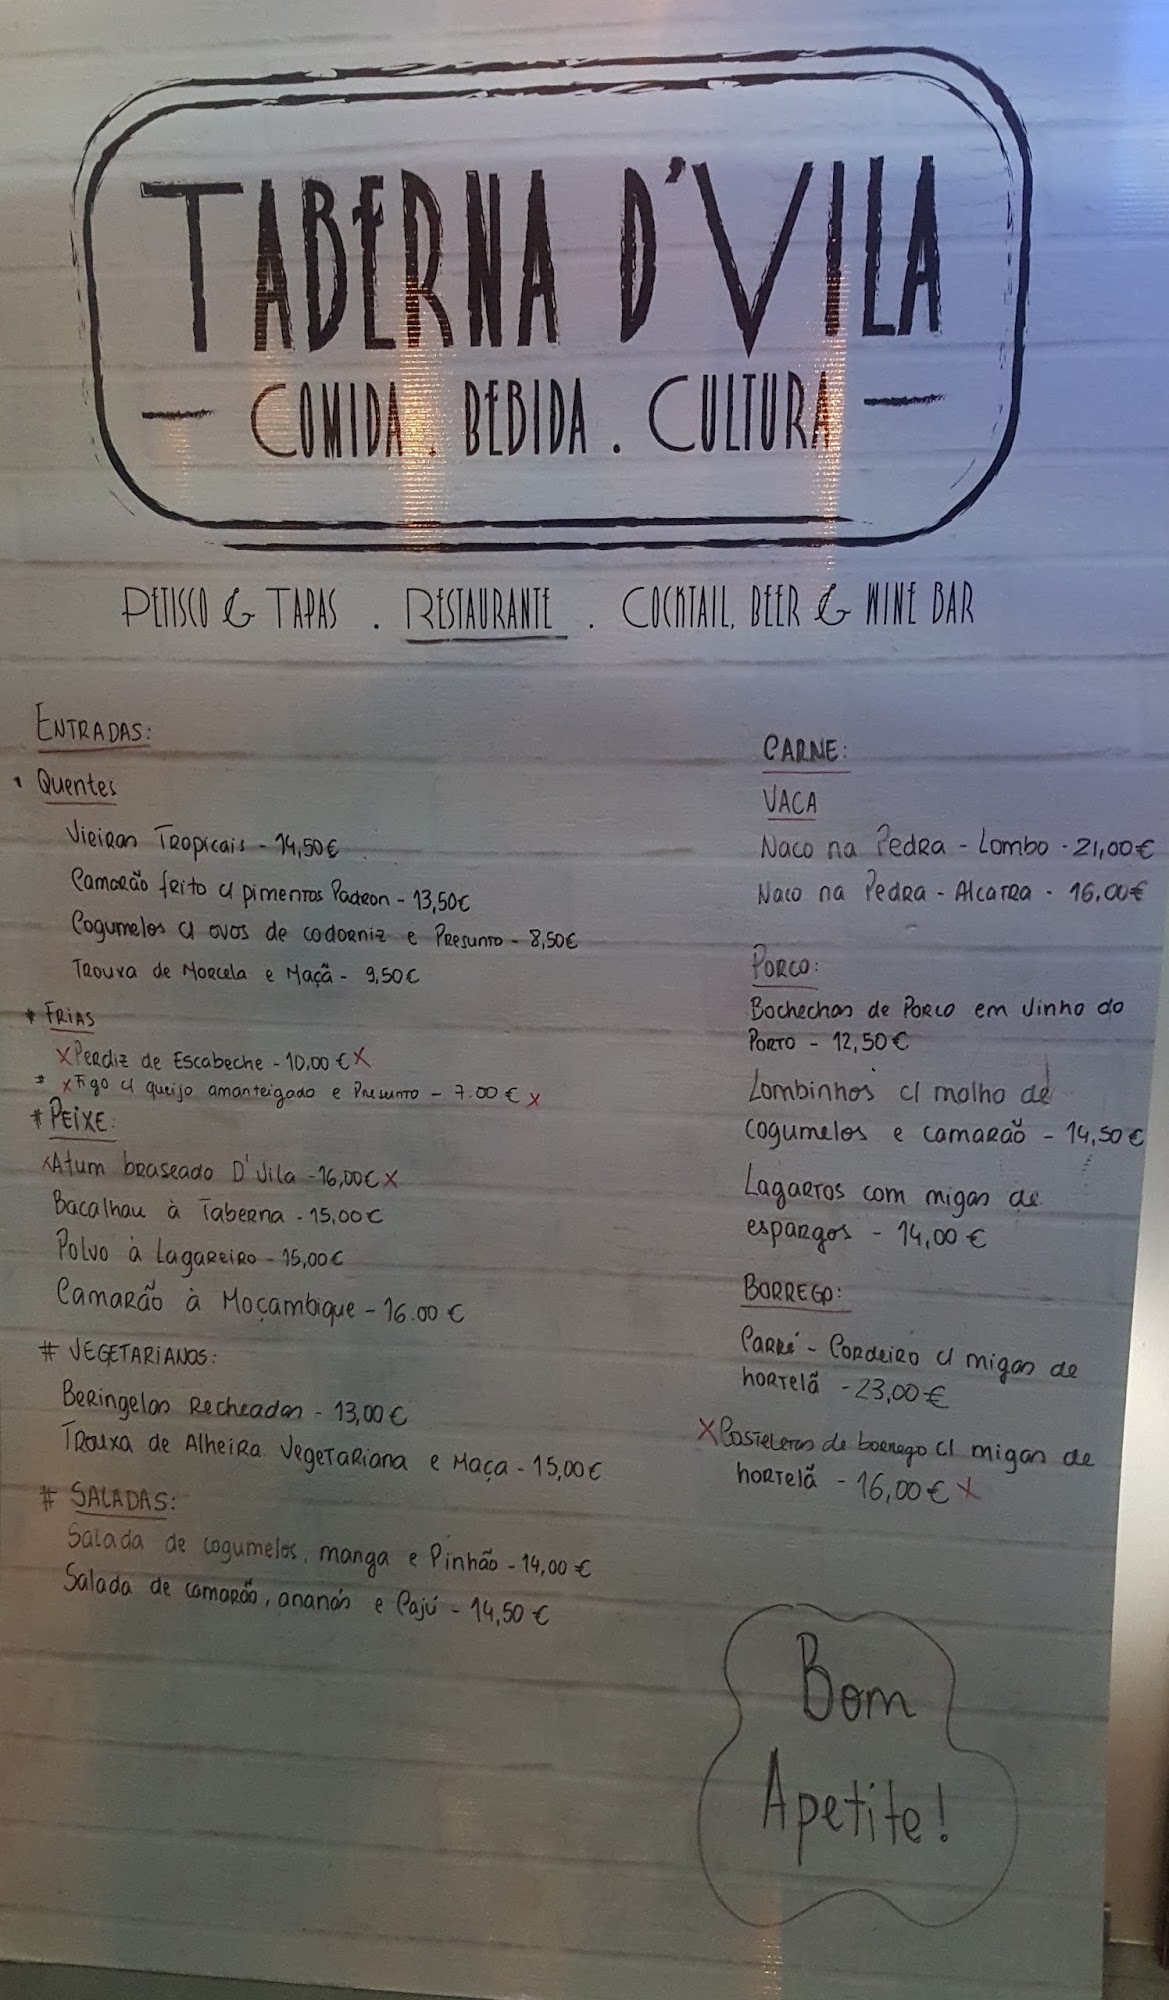 TABERNA D'VILA
- COMIDA . BEBIDA . CULTURA -
PETISCO & TAPAS . RESTAURANTE . COCKTAIL, BEER & WINE BAR
ENTRADAS:
• Quentes
Vieiras Tropicais - 14,50€
Camarão frito c/ pimentos Padron - 13,50€
Cogumelos c/ ovos de codorniz e Presunto - 8,50€
Trouxa de Morcela e Maçã - 9,50€
* FRIAS
x Perdiz de Escabeche - 10,00 € x
# x Figo c/ queijo amanteigado e Presunto - 7.00 € x
* PEIXE:
x Atum braseado D'Vila - 16,00€ x
Bacalhau à Taberna - 15,00€
Polvo à Lagareiro - 15,00€
Camarão à Moçambique - 16.00 €
# VEGETARIANOS:
Beringelas Recheadas - 13,00€
Trouxa de Alheira Vegetariana e Maça - 15,00€
# SALADAS:
Salada de cogumelos, manga e Pinhão - 14,00 €
Salada de camarão, ananás e Cajú - 14,50 €
CARNE:
VACA
Naco na Pedra - Lombo - 21,00€
Naco na Pedra - Alcatra - 16.00€
PORCO:
Bochechas de Porco em Vinho do
Porto - 12,50€
Lombinhos c/ molho de
cogumelos e camarão - 14,50€
Lagartos com migas de
espargos - 14,00€
BORREGO:
Carré - Cordeiro c/ migas de
hortelã - 23,00€
x Costeletas de borrego c/ migas de
hortelã - 16,00€ x
Bom
Apetite!